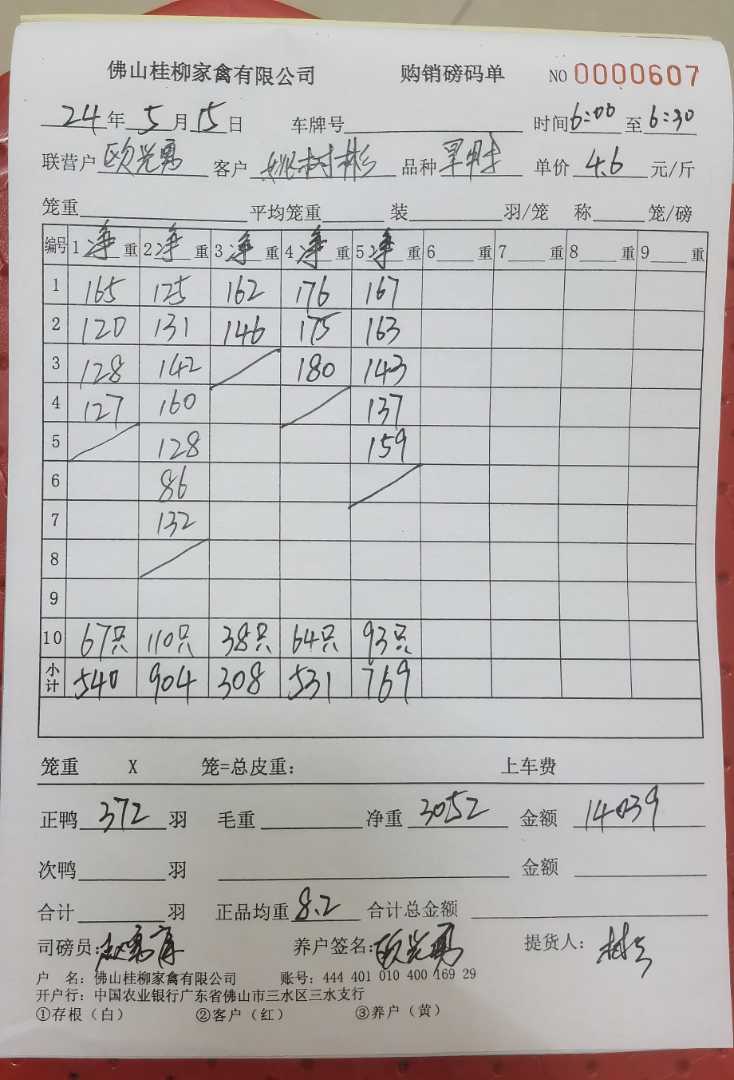 佛山桂柳家禽有限公司 购销磅码单 NO 0000607
24年5月15日 车牌号 时间6:00至6:30
联营户 欧光勇 客户 姚树彬 品种 单价 4.6 元/斤
笼重 平均笼重 装 羽/笼 称 笼/磅
编号 1 净 重 2 净 重 3 净 重 4 净 重 5 净 重 6 重 7 重 8 重 9 重
1 165 125 162 176 167
2 120 131 146 175 163
3 128 142 180 143
4 127 160 137
5 128 159
6 86
7 132
8
9
10 67只 110只 38只 64只 93只
小计 540 904 308 531 769
笼重 X 笼=总皮重: 上车费
正鸭 372 羽 毛重 净重 3052 金额 14039
次鸭 羽 金额
合计 羽 正品均重 8.2 合计总金额
司磅员: 养户签名: 欧光勇 提货人:
户 名: 佛山桂柳家禽有限公司 账号: 444 401 010 400 169 29
开户行: 中国农业银行广东省佛山市三水区三水支行
①存根(白) ②客户(红) ③养户(黄)